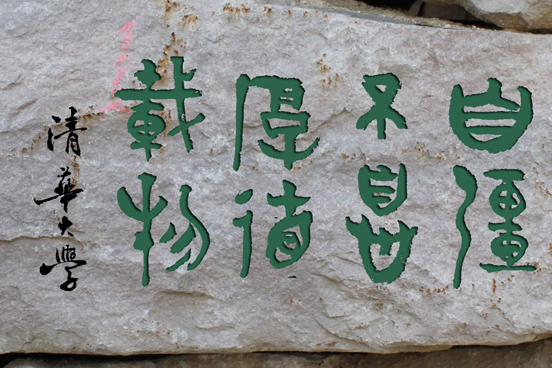 自彊
不息
厚德
載物
清華大學